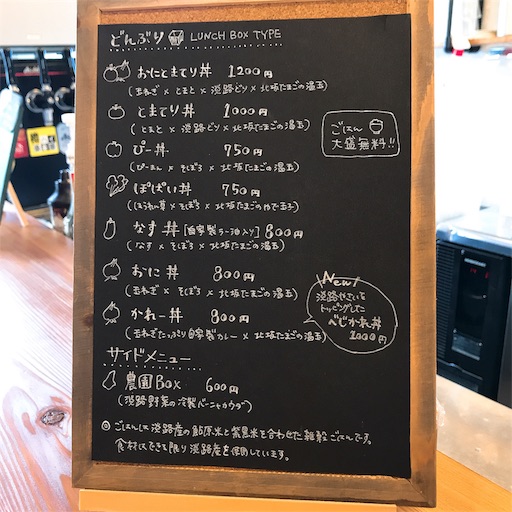 どんぶり LUNCH BOX TYPE
おにとまてり丼 1200円
(玉ねぎ × とまと × 淡路どり × 北坂たまごの温玉)
とまてり丼 1000円
(とまと × 淡路どり × 北坂たまごの温玉)
ごはん
大盛無料!!
ぴー丼 750円
(ぴーまん × そぼろ × 北坂たまごの温玉)
ぽぱい丼 750円
(ほうれん草 × そぼろ × 北坂たまごのゆで玉子)
なす丼 [自家製ラー油入り] 800円
(なす × そぼろ × 北坂たまごの温玉)
おに丼 800円
(玉ねぎ × そぼろ × 北坂たまごの温玉)
かれー丼 800円
(玉ねぎたっぷり自家製カレー × 北坂たまごの温玉)
New!
淡路やさいを
トッピングした
べじかれ丼
1000円
サイドメニュー
農園Box 600円
(淡路野菜の冷製バーニャカウダ)
◎ごはんは淡路産の鮎原米と紫黒米を合わせた雑穀ごはんです。
食材はできる限り淡路産を使用しています。